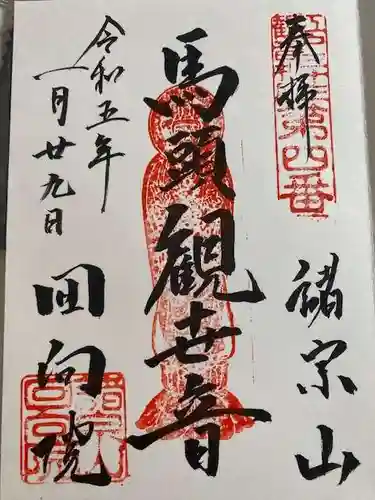 奉拝
諸宗山
馬頭観世音
令和五年
一月廿九日
回向院